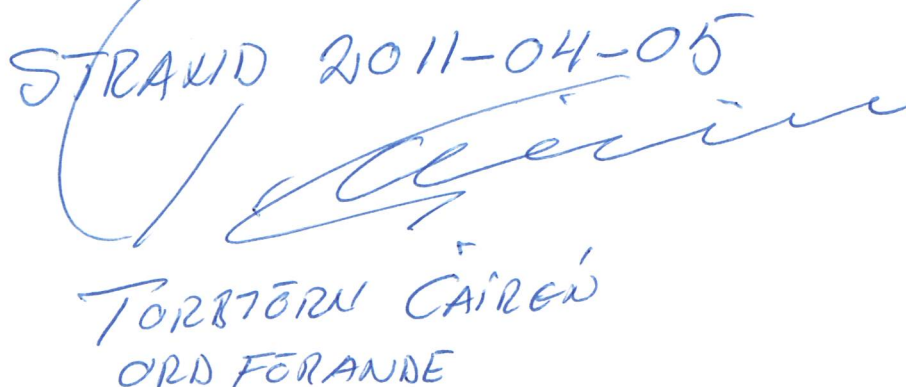 STRAND 2011-04-05
TORBJÖRN CAIRÉN
ORDFÖRANDE